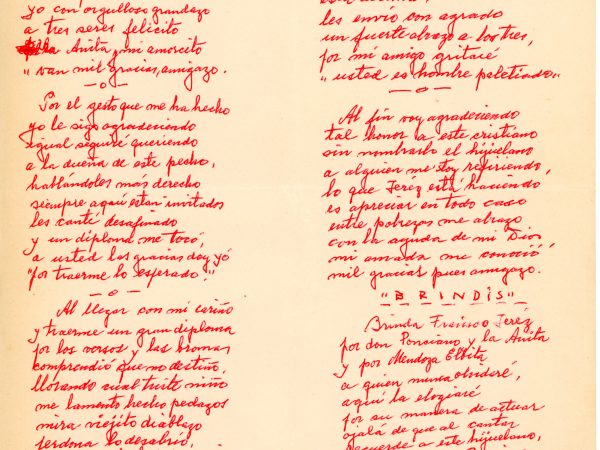 yo con orgulloso grandazo
a tres seres felicito
la Anita, mi amorcito
"van mil gracias, amigazo.
—o—
Por el gesto que me ha hecho
yo le sigo agradeciendo
igual seguiré queriendo
a la dueña de este pecho,
hablándoles más derecho
siempre aquí están invitados
les canté desafinado
y un diploma me tocó,
a usted las gracias doy yó
"por traerme lo esperado."
—o—
Al llegar con mi cariño
y traerme un gran diploma
por los versos y las bromas
comprendió que no destiño,
llorando cual triste niño
me lamento hecho pedazos
mira viejito diablazo
perdona lo desabrío,
les envío con agrado
un fuerte abrazo a los tres,
por mi amigo gritaré
"usted es hombre paleteado"
—o—
Al fin voy agradeciendo
tal honor a este cristiano
sin nombrarlo el hijuelano
a alguien me estoy refiriendo,
lo que Jeréz está haciendo
es apreciar en todo caso
entre pobrezas me abrazo
con la ayuda de mi Dios
mi amada me conoció
mil gracias pues amigazo.
"BRINDIS"
Brinda Francisco Jeréz
por don Ponciano y la Anita
y por Mendoza Elbita
a quien nunca olvidaré,
aquí la elogiaré
por su manera de actuar
ojalá de que al cantar
recuerde a este hijuelano,